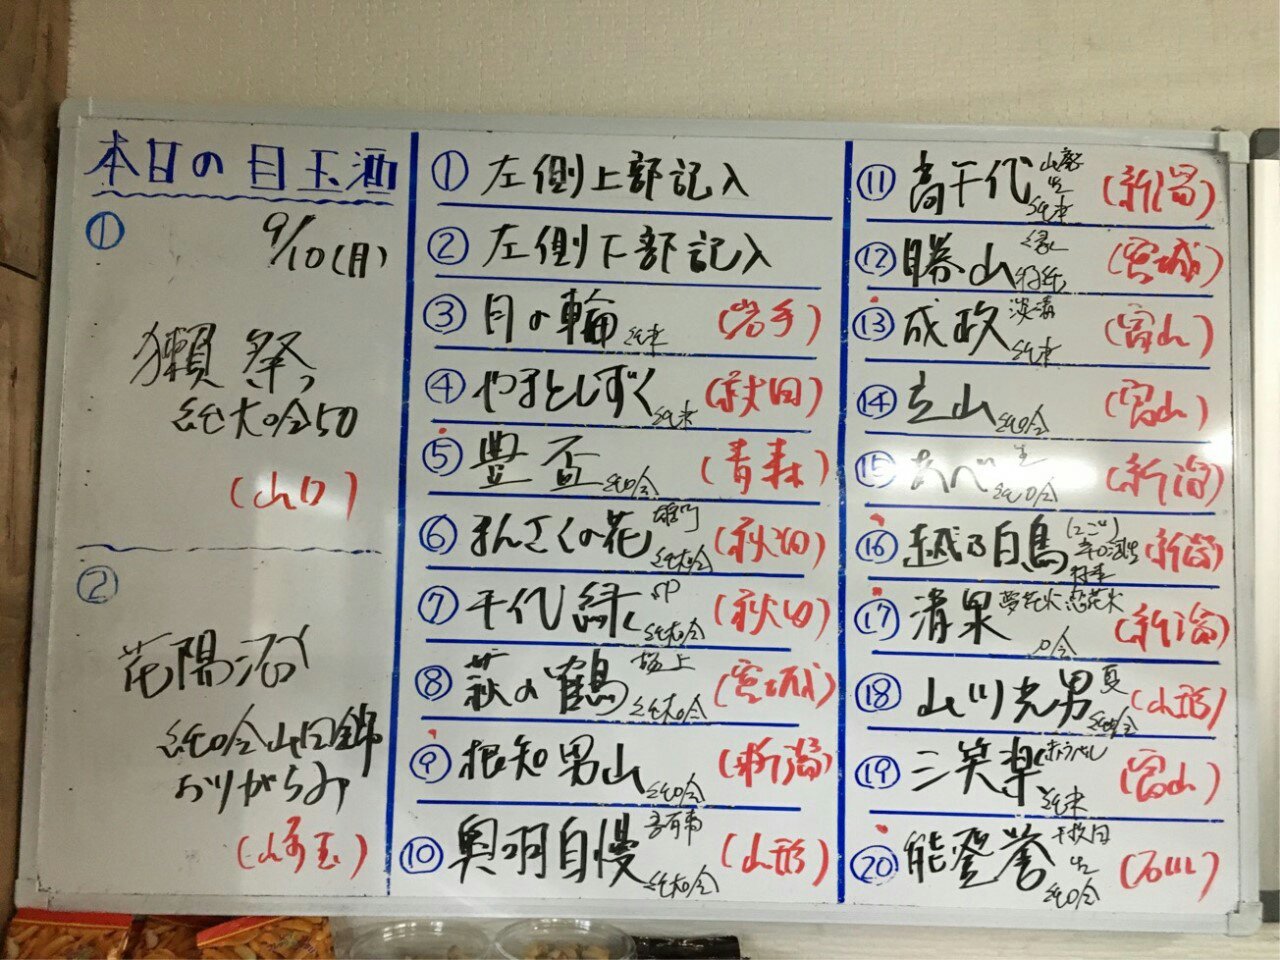 本日の目玉酒
①
9/10(月)
獺祭
純大吟50
(山口)
②
花陽浴
純吟山田錦
おりがらみ
(埼玉)
① 左側上部記入
② 左側下部記入
③ 月の輪 純米 (岩手)
④ やまとしずく 純米 (秋田)
⑤ 豊盃 純吟 (青森)
⑥ まんさくの花 純大吟 (秋田)
⑦ 千代緑 純大吟 (秋田)
⑧ 萩の鶴 極上 純大吟 (宮城)
⑨ 根知男山 純吟 (新潟)
⑩ 奥羽自慢 純大吟 (山形)
⑪ 高千代 山廃 生 純米 (新潟)
⑫ 勝山 縁 特純 (宮城)
⑬ 成政 純米 (富山)
⑭ 立山 純吟 (富山)
⑮ あべ 生 純吟 (新潟)
⑯ 越乃白鳥 (新潟)
⑰ 清泉 夢花火 恋花火 吟 (新潟)
⑱ 山川光男 夏 純吟 (山形)
⑲ 三笑楽 純米 (富山)
⑳ 能登誉 千枚田 生 純吟 (石川)